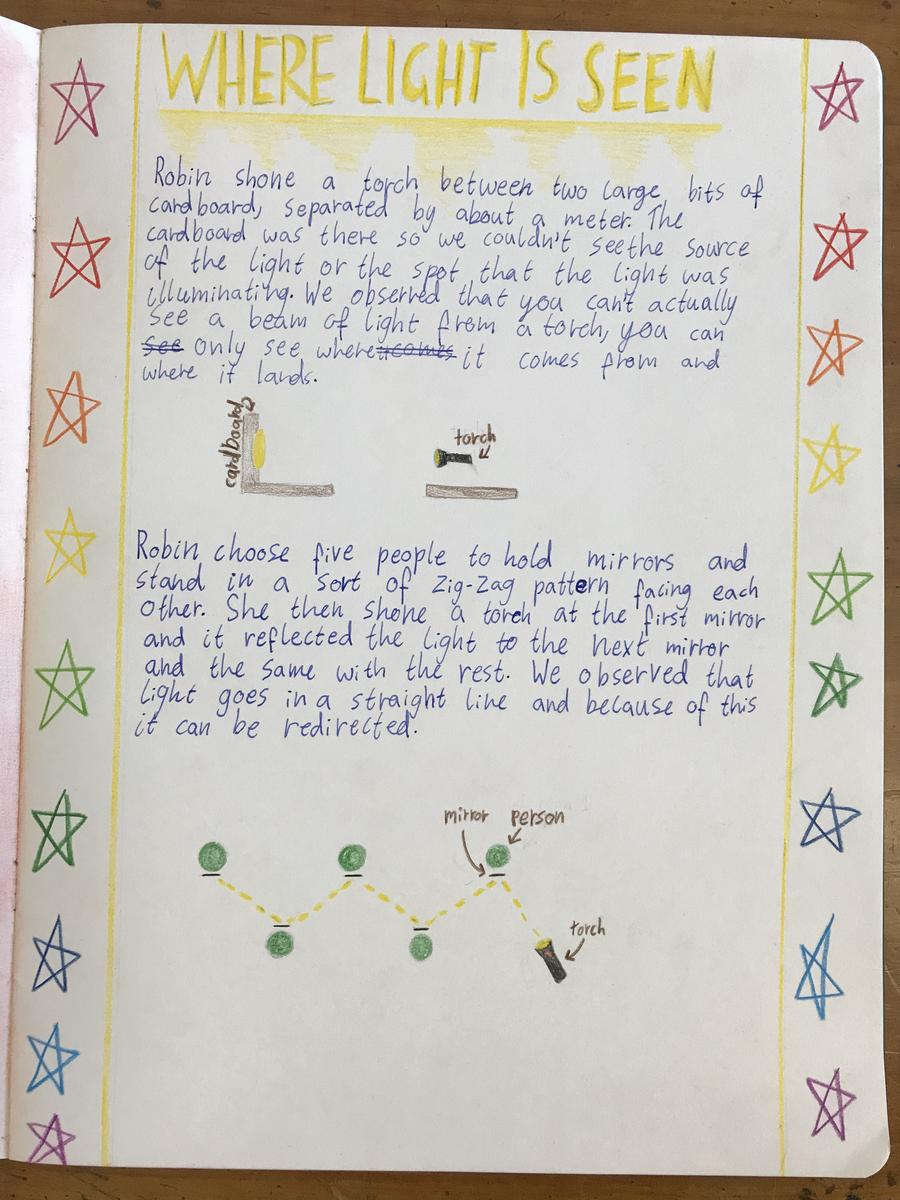 WHERE LIGHT IS SEEN
Robin shone a torch between two large bits of
cardboard, separated by about a meter. The
cardboard was there so we couldn't see the source
of the light or the spot that the light was
illuminating. We observed that you can't actually
see a beam of light from a torch, you can
see only see where it comes it comes from and
where it lands.
cardboard
torch
Robin choose five people to hold mirrors and
stand in a sort of Zig-Zag pattern facing each
other. She then shone a torch at the first mirror
and it reflected the light to the next mirror
and the same with the rest. We observed that
light goes in a straight line and because of this
it can be redirected.
mirror person
torch